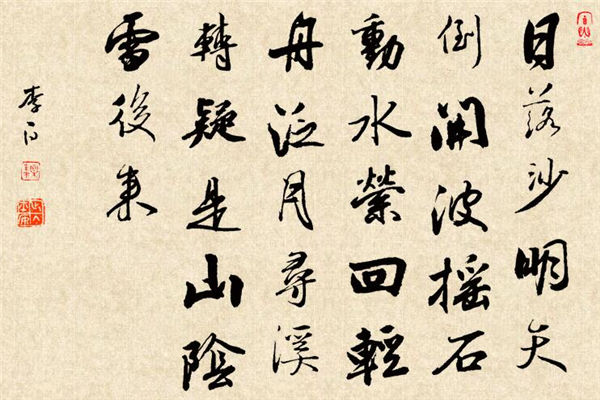 日落沙明天
倒開波搖石
動水縈回輕
舟泛月尋溪
轉疑是山陰
雪後來
李白